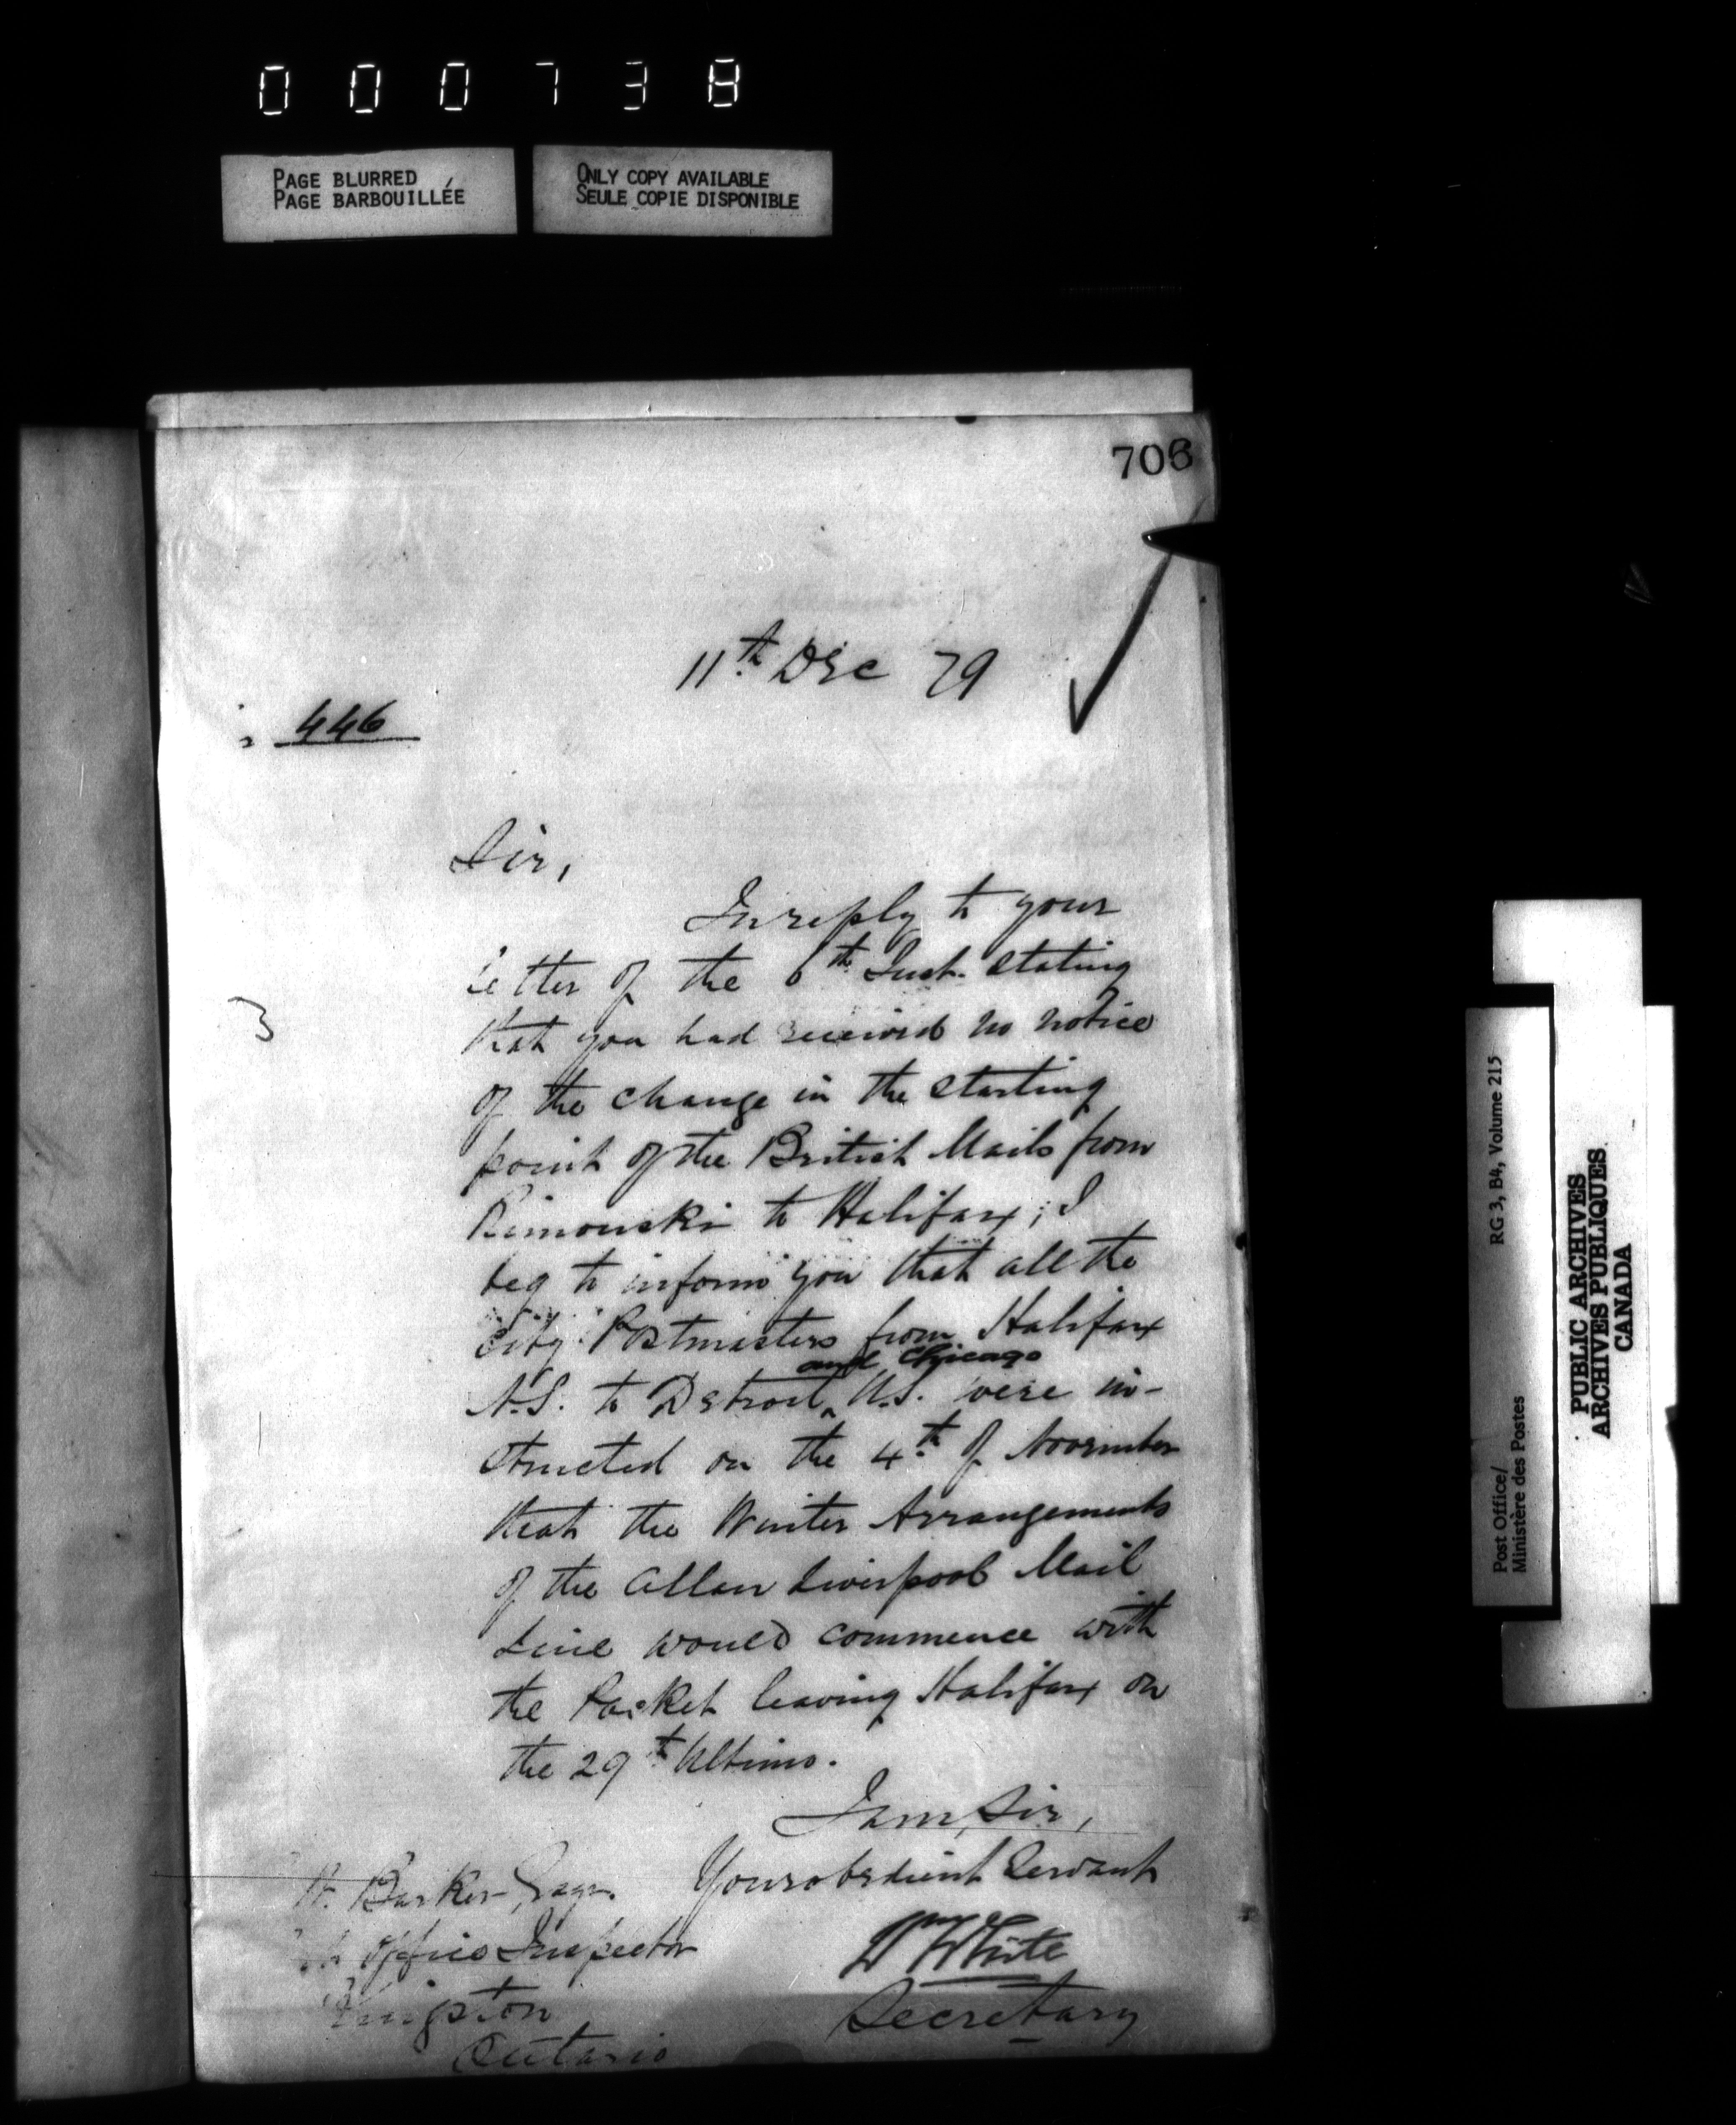 000738
PAGE BLURRED
PAGE BARBOUILLÉE
ONLY COPY AVAILABLE
SEULE COPIE DISPONIBLE
706
11th Dec 79
446
Sir,
In reply to your
letter of the 6th Inst. stating
3
that you had received no notice
of the change in the starting
point of the British Mails from
Rimouski to Halifax; I
beg to inform you that all the
City Postmasters from Halifax
and Chicago
N.S. to Detroit ^ U.S. were in-
structed on the 4th of November
that the Winter Arrangements
of the Allan Liverpool Mail
Line would commence with
the Packet leaving Halifax on
the 29th Ultimo.
I am, Sir,
Your obedient Servant
Wm White
Secretary
Barker, Esqr.
Office Inspector
Kingston
Ontario
RG 3, B4, Volume 215
Post Office/
Ministère des Postes
PUBLIC ARCHIVES
ARCHIVES PUBLIQUES
CANADA